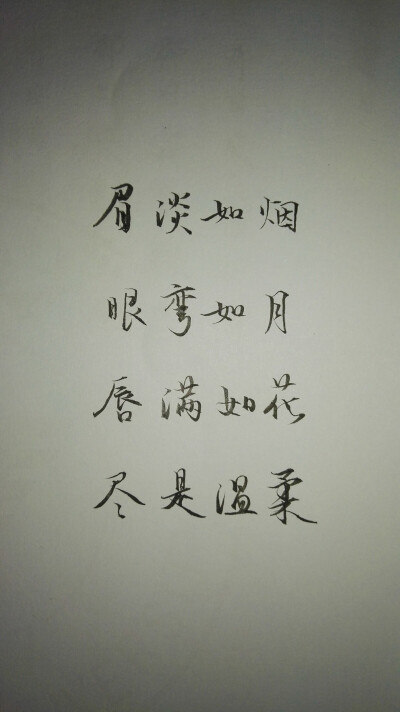 眉淡如烟
眼弯如月
唇满如花
尽是温柔